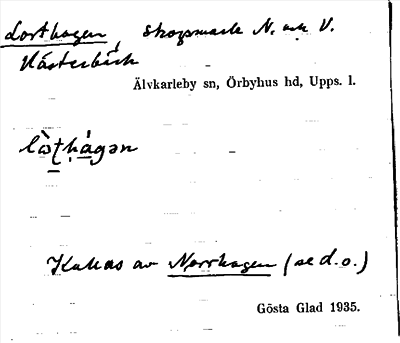 Lorthagen, skogsmark N. och V.
Västerbäck
Älvkarleby sn, Örbyhus hd, Upps. l.
lò̱ṭḥágən
Kallas av Norrhagen (se d.o.)
Gösta Glad 1935.